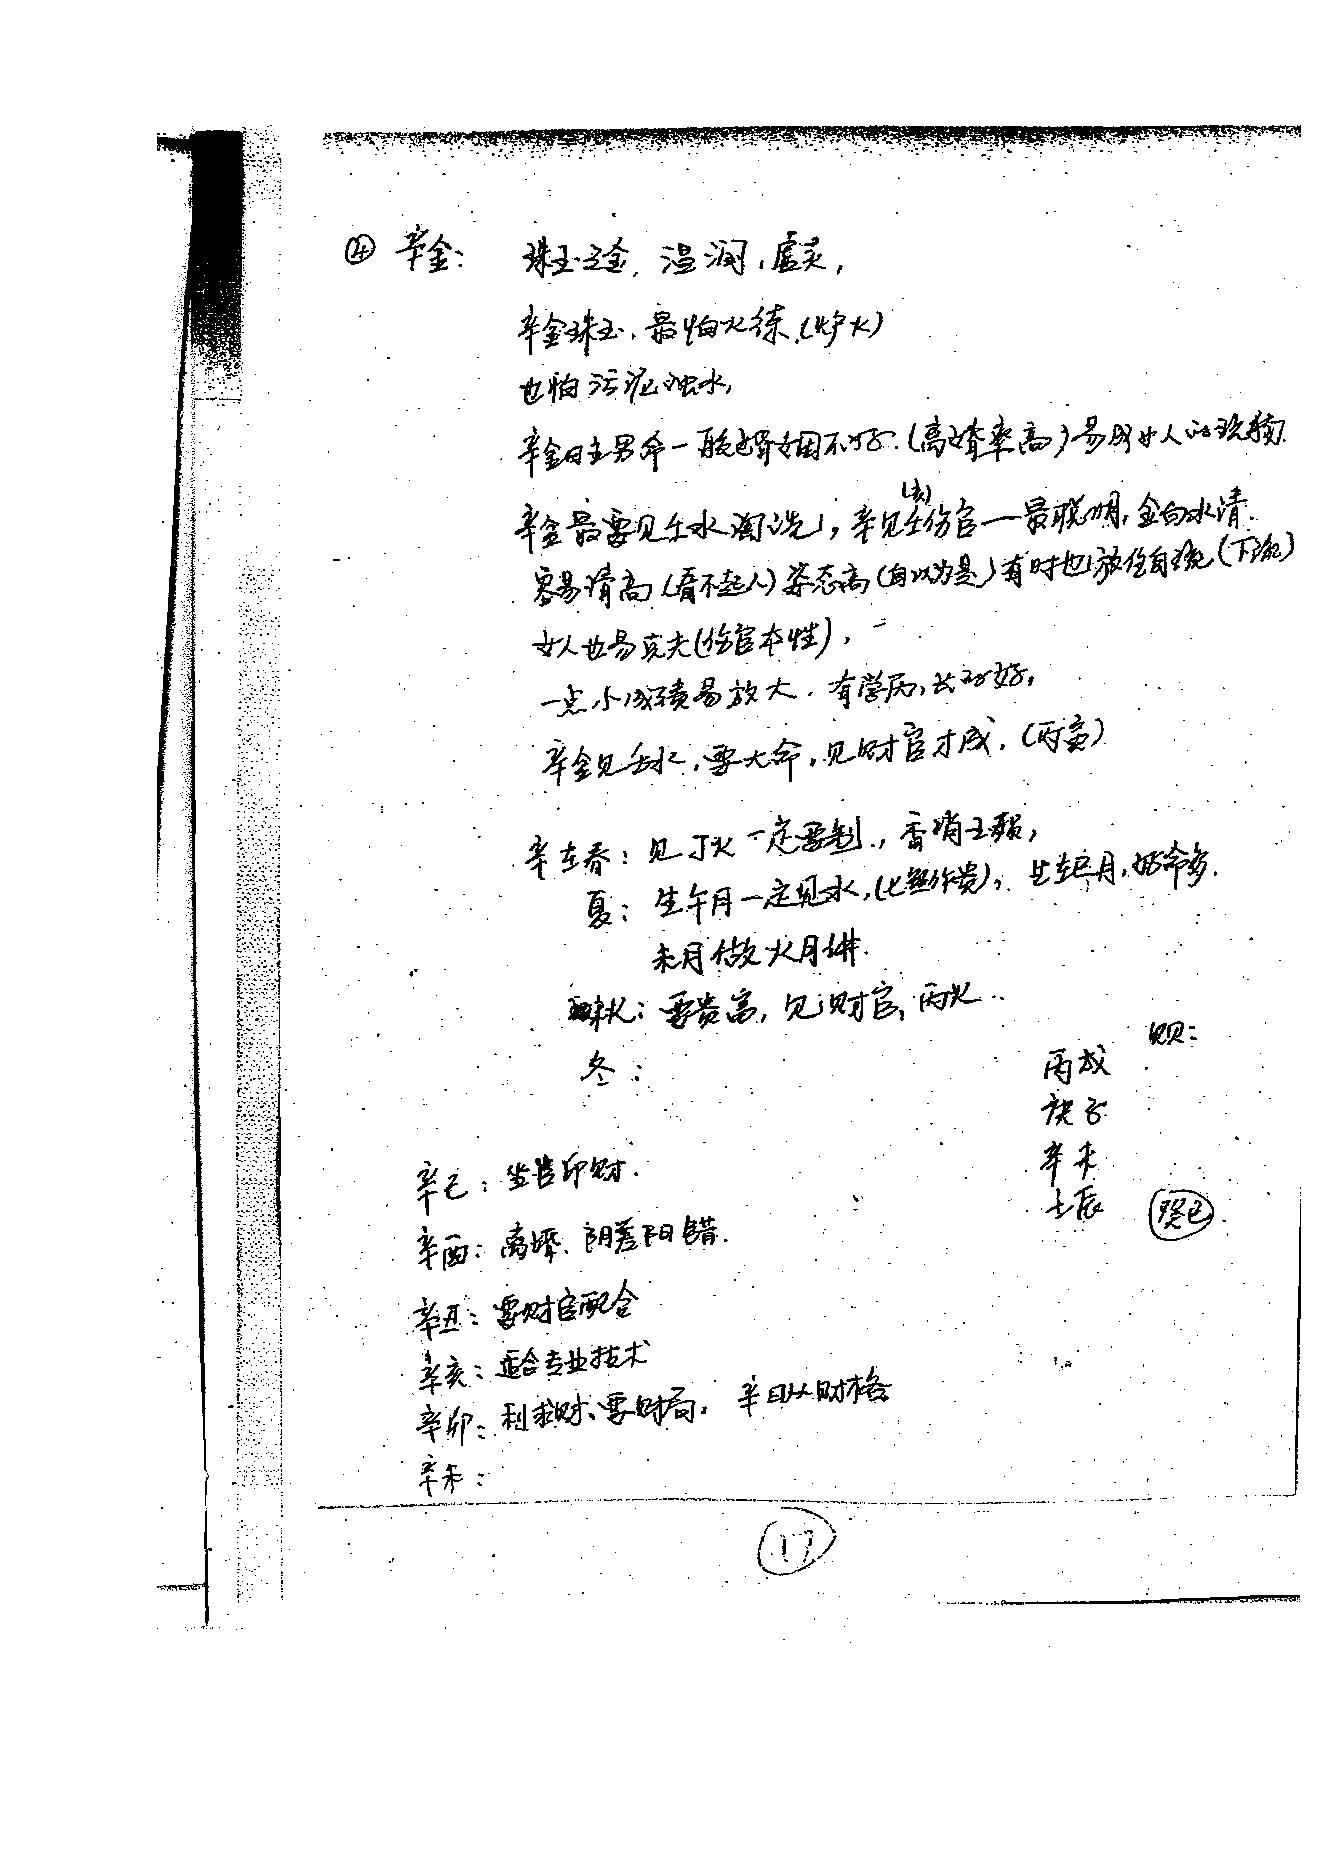 ④ 辛金： 珠玉之金，温润，虚灵，
辛金珠玉，最怕火炼，（炉火）
也怕污泥浊水，
辛金日主男命一般婚姻不好．（离婚率高）易成女人的
辛金最要见壬水淘洗，辛见壬伤官一最聪明，金白水清．
容易清高（看不起人）姿态高（自以为是）有时也放任自流（下流）
女人也易克夫（伤官本性），
一点小成绩易放大．有学历，长不好，
辛金见壬水，要大命，见财官才成．（丙寅）
辛在春：见丁火一定要制，
夏：生午月一定见水，（七作贵），生在巳月，好命多．
未月做火月讲．
秋：要贵富，见财官，丙火..
冬：
丙戌
庚子
辛未
壬辰
癸巳
辛巳：坐官印财．
辛酉：离婚、阴差阳错．
辛丑：要财官配合
辛亥：适合专业技术
辛卯：利求财、要财局． 辛日从财格
辛未：
17